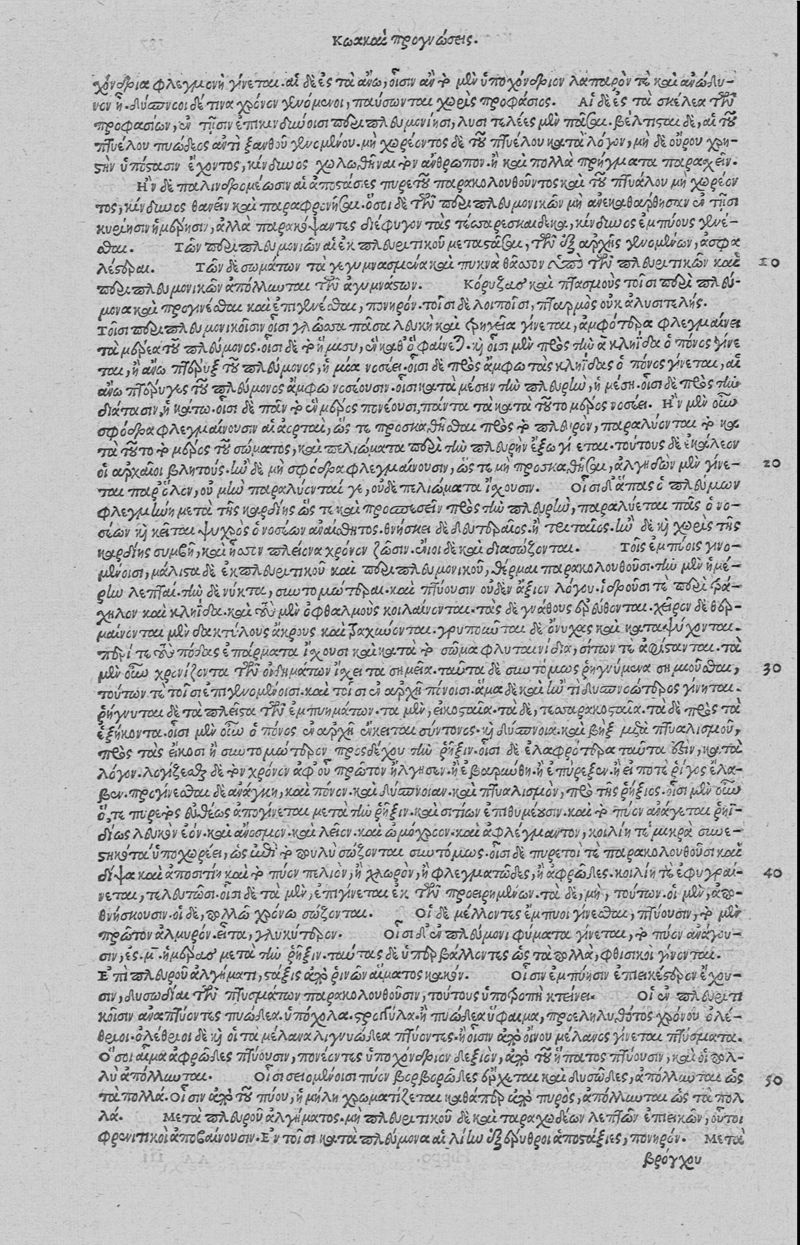 Κωακαὶ προγνώσεις.
χόνδρια φλεγμονὴ γίνεται. αἱ δὲ ἐς τὰ ἄνω, οἷσιν ἂν τὸ μὲν ὑποχόνδριον λαπαρὸν τε καὶ ἀνώδυ-
νον ᾖ. δύσπνοοι δέ τινα χρόνον γενόμενοι, παύσωνται χωρὶς προφάσιος. Αἱ δὲ ἐς τὰ σκέλεα τῶν
προφασίων, ἐν τῇσιν ἐπικινδύνοισι περιπλευμονίῃσι, λυσιτελέες μὲν πᾶσαι. βέλτισται δὲ, αἱ τοῦ
πτυέλου πυώδεος ἀντὶ ξανθοῦ γενομένου. μὴ χωρέοντος δὲ τοῦ πτυέλου κατὰ λόγον, μὴ δὲ οὔρου χρη-
στὴν ὑπόστασιν ἔχοντος, κίνδυνος χωλωθῆναι τὸν ἄνθρωπον. ἢ καὶ πολλὰ πρήγματα παρασχεῖν.
Ἢν δὲ παλινδρομέωσιν αἱ ἀποστάσιες πυρετοῦ παρακολουθοῦντος καὶ τοῦ πτυάλου μὴ χωρέον
τος, κίνδυνος θανεῖν καὶ παραφρονῆσαι. ὅσοι δὲ τῶν περιπλευμονικῶν μὴ ἀνεκαθάρθησαν ἐν τῇσι
κυρίῃσιν ἡμέρῃσιν, ἀλλὰ παρακόψαντες διέφυγον τὰς τέσσαρεσκαίδεκα, κίνδυνος ἐμπύους γενέ-
σθαι. Τῶν περιπλευμονιῶν αἱ ἐκ πλευριτικοῦ μεταστᾶσαι, τῶν ἐξ ἀρχῆς γενομένων, ἀσφα
λέστεραι. Τῶν δὲ σωμάτων τὰ γεγυμνασμένα καὶ πυκνὰ θᾶσσον ὑπὸ τῶν πλευριτικῶν καὶ 10
περιπλευμονικῶν ἀπόλλυται τῶν ἀγυμνάστων. Κόρυζας καὶ πταρμοὺς τοῖσι περιπλευ-
μονα καὶ προγίνεσθαι καὶ ἐπιγενέσθαι, πονηρόν. τοῖσι δὲ λοιποῖσι, πταρμὸς οὐκ ἀλυσιτελής.
Τοῖσι περιπλευμονικοῖσιν οἷσι γλῶσσα πᾶσα λευκὴ καὶ τρηχεῖα γίνεται, ἀμφότερα φλεγμαίνει
τὰ μέρεα τοῦ πλεύμονος. οἷσι δὲ τὸ ἥμισυ, ἐν καθ' ὃ φαίνεται. καὶ οἷσι μὲν πρὸς τὴν ἃ κληῖδα ὁ πόνος γίνε
ται, ἡ ἄνω πτέρυξ τοῦ πλεύμονος, ἡ μία νοσέει. οἷσι δὲ πρὸς ἄμφω τὰς κληῖδας ὁ πόνος γίνεται, αἱ
ἄνω πτέρυγες τοῦ πλεύμονος ἄμφω νοσέουσιν. οἷσι κατὰ μέσην τὴν πλευρὴν, ἡ μέση. οἷσι δὲ πρὸς τὴν
διάτασιν, ἡ κάτω. οἷσι δὲ πᾶν τὸ ἓν μέρος πονέουσι, πάντα τὰ κατὰ τοῦτο μέρος νοσέει. Ἢν μὲν οὖν
σφόδρα φλεγμαίνουσιν αἱ ἀορταὶ, ὥς τε προσκαθῆσθαι πρὸς τὸ πλευρὸν, παραλύονται τὸ κα
τὰ τοῦτο τὸ μέρος τοῦ σώματος, καὶ πελιώματα περὶ τὴν πλευρὴν ἔξω γί εται. τούτους δὲ ἐκάλεον
οἱ ἀρχαῖοι βλητούς. ἢν δὲ μὴ σφόδρα φλεγμαίνουσιν, ὥς τε μὴ προσκαθῆσθαι, ἀλγηδὼν μὲν γίνε- 20
ται παρ' ὅλον, οὐ μὴν παραλύονταί γε, οὐδὲ πελιώματα ἴσχουσιν. Οἷσι δ' ἅπας ὁ πλεύμων
φλεγμήνῃ μετὰ τῆς καρδίης ὥς τε καὶ προσπεσεῖν πρὸς τὴν πλευρὴν, παραλύεται πᾶς ὁ νο-
σέων καὶ κεῖται ψυχρὸς ὁ νοσέων ἀναίσθητος. θνήσκει δὲ δευτεραῖος. ἢ τριταῖος. ἢν δὲ καὶ χωρὶς τῆς
καρδίης συμβῇ, καὶ ἧσσον πλείονα χρόνον ζῶσιν. ἔνιοι δὲ καὶ διασώζονται. Τοῖς ἐμπύοις γινο-
μένοισι, μάλιστα δὲ ἐκ πλευριτικοῦ καὶ περιπλευμονικοῦ, θέρμαι παρακολουθοῦσι. τὴν μὲν ἡμέ-
ρην λεπταὶ. τὴν δὲ νύκτα, συντομώτεραι. καὶ πτύουσιν οὐδὲν ἄξιον λόγου. ἱδροῦσί τε περὶ τρά-
χηλον καὶ κληῖδα. καὶ τοὺς μὲν ὀφθαλμοὺς κοιλαίνονται. τὰς δὲ γνάθους ἐρεύθονται. χεῖρον δὲ θερ-
μαίνονται μὲν δακτύλους ἄκρους καὶ τραχύνονται. γρυποῦται δὲ ὄνυχας καὶ καταψύχονται.
περί τε τοὺς πόδας ἐπάρματα ἴσχουσι καὶ κατὰ τὸ σῶμα φλυταινίδια, σίτων τε ἀφίστανται. τὰ
μὲν οὖν χρονίζοντα τῶν οἰδημάτων ἴσχει τὰ σημεῖα. ταῦτα δὲ συντόμως ῥηγνύμενα σημειοῦσθαι, 30
τούτων τε τοῖσι ἐπιγενομένοισι. καὶ τοῖσι ἐν ἀρχῇ πόνοισι. ἅμα δὲ καὶ ἤν τι δυσπνοώτερος γίνηται.
ῥήγνυται δὲ τὰ πλεῖστα τῶν ἐμπυημάτων. τὰ μὲν, εἰκοσταῖα. τὰ δὲ, τεσσαρακοσταῖα. τὰ δὲ πρὸς τὰ
ἑξήκοντα. οἷσι μὲν οὖν ὁ πόνος ἐν ἀρχῇ ἔγκειται σύντονος. καὶ δύσπνοια. καὶ βὴξ μετὰ πτυαλισμοῦ,
πρὸς τὰς εἴκοσι ἢ συντομώτερον προσδέχου τὴν ῥῆξιν. οἷσι δὲ ἐλαφρότερα ταῦτα ἐστὶν, κατὰ
λόγον. λογίζεσθαι δὲ τὸν χρόνον ἀφ' οὗ πρῶτον ἤλγησεν. ἢ ἐβαρύνθη. ἢ ἐπύρεξεν. ἢ εἴ ποτε ῥῖγος ἔλα-
βεν. προγίνεσθαι δὲ ἀνάγκη, καὶ πόνον. καὶ δύσπνοιαν. καὶ πτυαλισμὸν, πρὸ τῆς ῥήξιος. οἷσι μὲν οὖν
ὅ, τε πυρετὸς εὐθέως ἀπογίνεται μετὰ τὴν ῥῆξιν. καὶ σιτίων ἐπιθυμέουσιν. καὶ τὸ πύον ἀνάγεται ῥηϊ-
δίως λευκὸν ἐόν. καὶ ἄνοσμον. καὶ λεῖον. καὶ ὁμόχροον. καὶ ἀφλέγμαντον, κοιλίη τε μικρὰ συνε-
στηκότα ὑποχωρέει, ὡς ἐπὶ τὸ πουλὺ σώζονται συντόμως. οἷσι δὲ πυρετοί τε παρακολουθοῦσι καὶ
δίψα καὶ ἀποσιτίη καὶ τὸ πύον πελιὸν, ἢ χλωρὸν, ἢ φλεγματῶδες, ἢ ἀφρῶδες. κοιλίη τε ἐφυγραί- 40
νεται, τελευτῶσι. οἷσι δὲ τὰ μὲν, ἐπιγίνεται ἐκ τῶν προειρημένων. τὰ δὲ, μὴ, τούτων. οἱ μὲν, ἀπο-
θνήσκουσιν. οἱ δὲ, πολλῷ χρόνῳ σώζονται. Οἱ δὲ μέλλοντες ἔμπυοι γίνεσθαι, πτύουσιν, τὸ μὲν
πρῶτον ἁλμυρόν. εἶτα, γλυκύτερον. Οἷσι δ' ἐν πλεύμονι φύματα γίνεται, τὸ πύον ἀνάγου-
σιν, ἐς. μ̄. ἡμέρας μετὰ τὴν ῥῆξιν. ταύτας δὲ ὑπερβάλλοντες ὡς τὰ πολλὰ, φθισικοὶ γίνονται.
Ἐπὶ πλευροῦ ἀλγήματι, στάξις ἀπὸ ῥινῶν αἵματος κακόν. Οἷσιν ἐμπύησιν ἐπιεικέστερον ἔχου-
σιν, δυσωδίαι τῶν πτυσμάτων παρακολουθοῦσιν, τούτους ὑποτροπὴ κτείνει. Οἱ ἐν πλευριτι
κοῖσιν ἀναπτύοντες πυώδεα. ὑπόχολα. στρογγύλα. ἢ πυώδεα ὕφαιμα, προεληλυθότος χρόνου ὀλέ-
θριοι. ὀλέθριοι δὲ καὶ οἱ τὰ μέλανα λιγνυώδεα πτύοντες. ἢ οἷσιν ἀπὸ οἴνου μέλανος γίνεται πτύσματα.
Ὅσοι αἷμα ἀφρῶδες πτύουσιν, πονέοντες ὑποχόνδριον δεξιὸν, ἀπὸ τοῦ ἥπατος πτύουσιν, καὶ οἱ πολ-
λοὶ ἀπόλλυνται. Οἷσι σειομένοισι πύον βορβορῶδες ἔρχεται καὶ δυσῶδες, ἀπόλλυνται ὡς 50
τὰ πολλά. Οἷσιν ἀπὸ τοῦ πύου, ἡ μήλη χρωματίζεται καθάπερ ἀπὸ πυρὸς, ἀπόλλυνται ὡς τὰ πολ
λά. Μετὰ πλευροῦ ἀλγήματος. μὴ πλευριτικοῦ δὲ καὶ ταραχωδέων λεπτῶν ἐπιεικῶν, οὗτοι
φρενιτικοὶ ἀποβαίνουσιν. Ἐν τοῖσι κατὰ πλεύμονα αἱ λίην ἐξέρυθροι ἀποστάξιες, πονηρόν. Μετὰ
βρόγχου